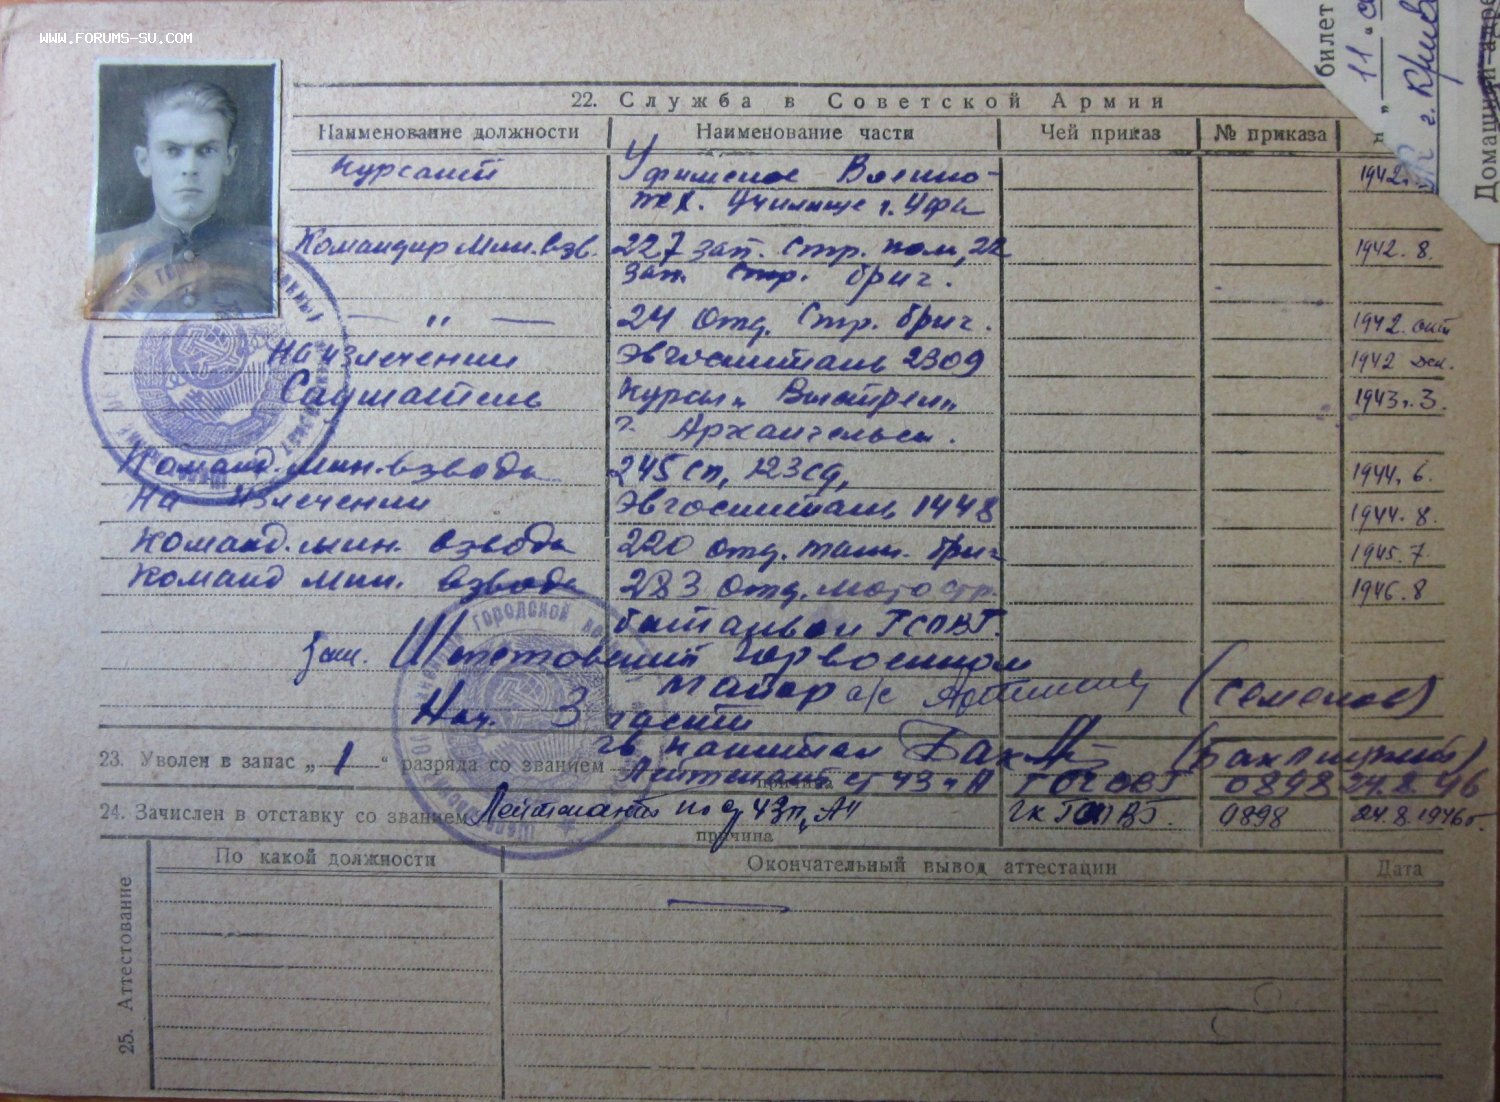 WWW.FORUMS-SU.COM
билет
"11"
г. Криво
Домашний адре
22. Служба в Советской Армии
Наименование должности Наименование части Чей приказ № приказа
Курсант Уфимское Военно- 1942
тех. училище г. Уфа
Командир мин. взв. 227 зап. стр. полк, 22 1942. 8.
зап. стр. бриг.
— " — 24 отд. стр. бриг. 1942. окт
На излечении Эвгоспиталь 2309 1942 дек.
Слушатель Курсы "Выстрел" 1943г. 3.
г. Архангельск.
Команд. мин. взвода 245 сп, 123 сд, 1944. 6.
На излечении Эвгоспиталь 1448 1944. 8.
Команд. мин. взвода 220 отд. танк. бриг 1945. 7.
Команд мин. взвода 283 отд. мото стр. 1946. 8
батальон ГСОВГ.
Зам. Шепетовский Горвоенком
майор а/с (Семенов)
Нач. 3 части
гв. капитан (Баклицкий)
23. Уволен в запас „1" разряда со званием Лейтенант ст 43 п А ГСОВГ 0898 24.8.46
причина
24. Зачислен в отставку со званием Лейтенанта по ст 43 п. "А" ГК ГСОВГ. 0898 24.8.1946г.
причина
25. Аттестование
По какой должности Окончательный вывод аттестации Дата